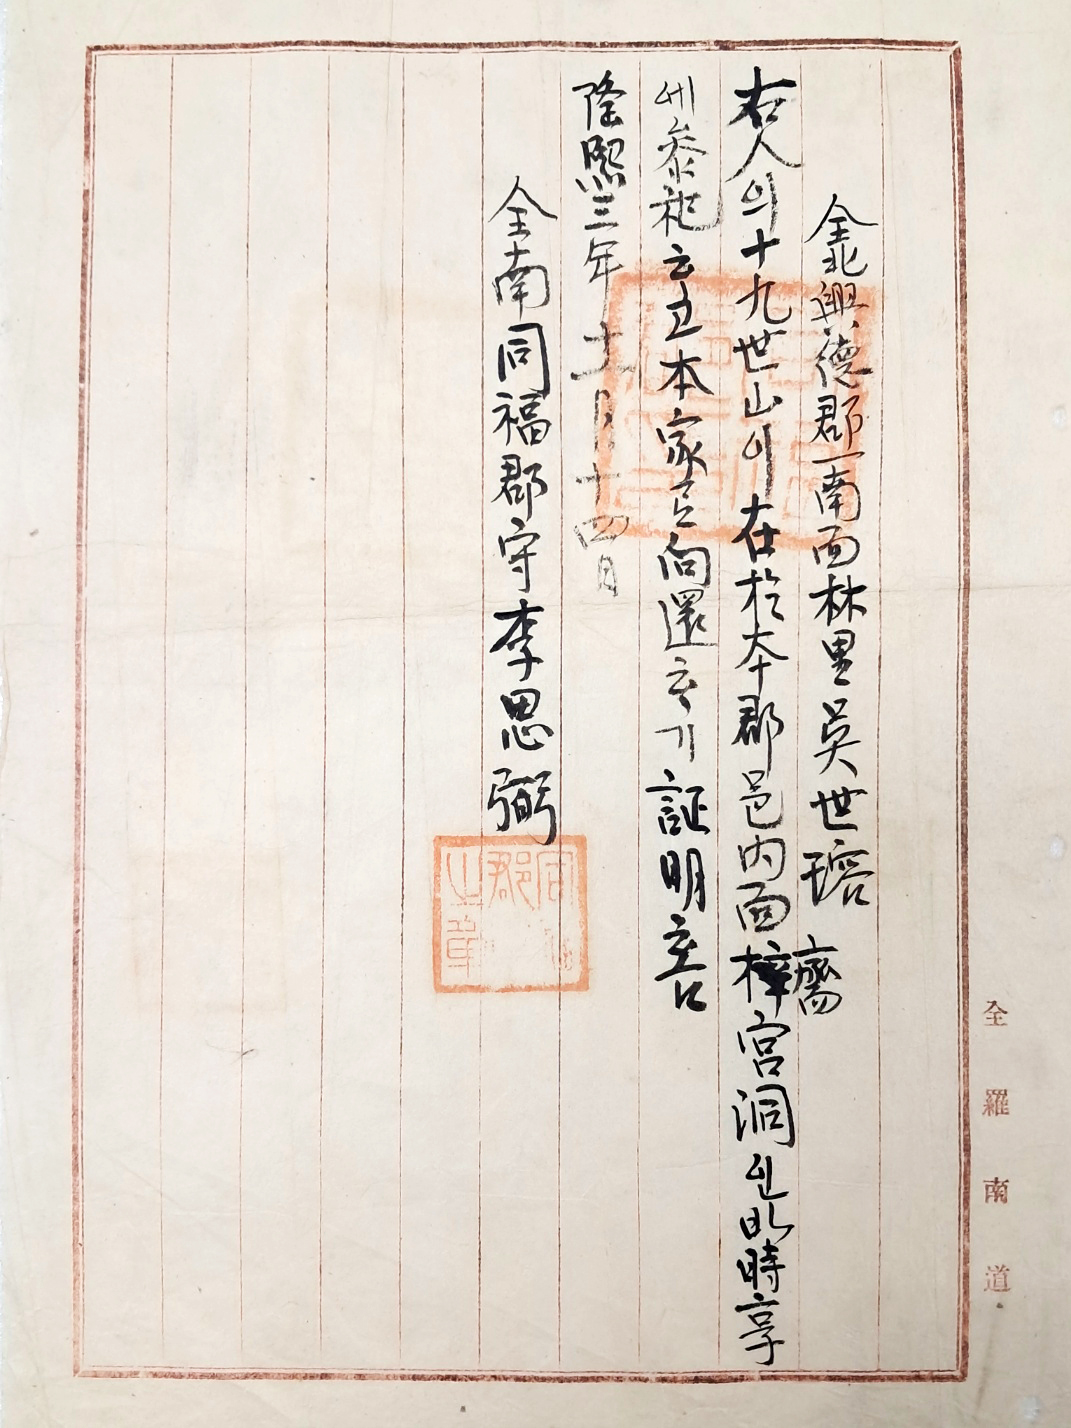 全羅南道
全北興德郡一南面林里吳世瑢 齋
右人의十九世山이在於本郡邑內面梓宮洞인此時享
에參祀ᄒᆞ고本家로向還ᄒᆞ기証明홈
隆熙三年十一月十四日
全南同福郡守李思弼
同福郡守之章